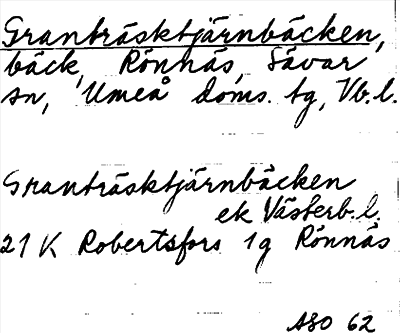 Granträsktjärnbäcken,
bäck, Rönnäs, Sävar
sn, Umeå doms. tg, Vb.l.
Granträsktjärnbäcken
ek Västerb.l.
21 K Robertsfors 1g Rönnäs
ASO 62